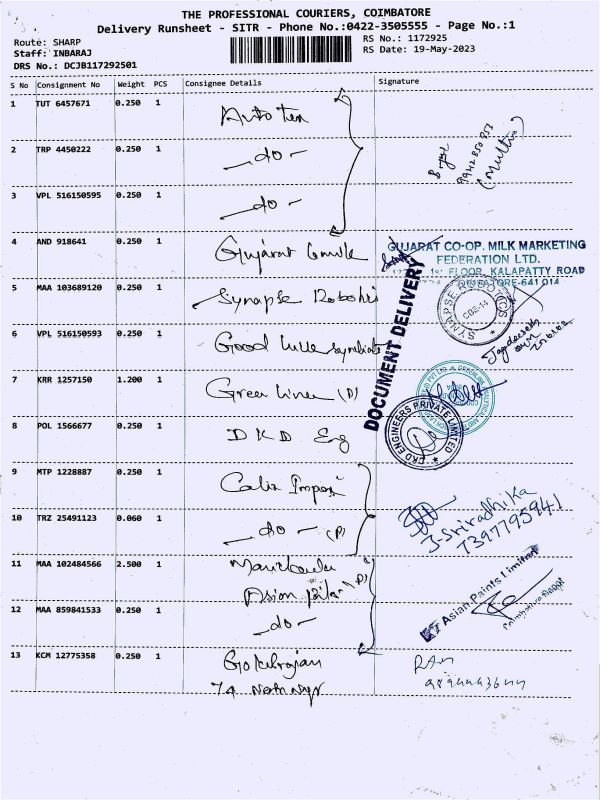 THE PROFESSIONAL COURIERS, COIMBATORE
Delivery Runsheet - SITR - Phone No.:0422-3505555 - Page No.:1
Route: SHARP
Staff: INBARAJ
DRS No.: DCJB117292501
RS No.: 1172925
RS Date: 19-May-2023
S No Consignment No Weight PCS Consignee Details Signature
1 TUT 6457671 0.250 1
2 TRP 4450222 0.250 1 -do-
3 VPL 516150595 0.250 1 -do-
4 AND 918641 0.250 1 Gujarat
GUJARAT CO-OP. MILK MARKETING
FEDERATION LTD.
1st FLOOR, KALAPATTY ROAD
COIMBATORE-641 014
5 MAA 103689120 0.250 1 Synapse Robotics
DOCUMENT DELIVERY
6 VPL 516150593 0.250 1 Good
7 KRR 1257150 1.200 1 Green Liner (P)
8 POL 1566677 0.250 1 DKD Eng
DKD ENGINEERS PRIVATE LIMITED
9 MTP 1228887 0.250 1
10 TRZ 25491123 0.060 1 -do- (P)
J-Sriradhika
7397795941
11 MAA 102484566 2.500 1
Asian
Asian Paints Limited
Coimbatore Depot
12 MAA 859841533 0.250 1 -do-
13 KCM 12775358 0.250 1
74